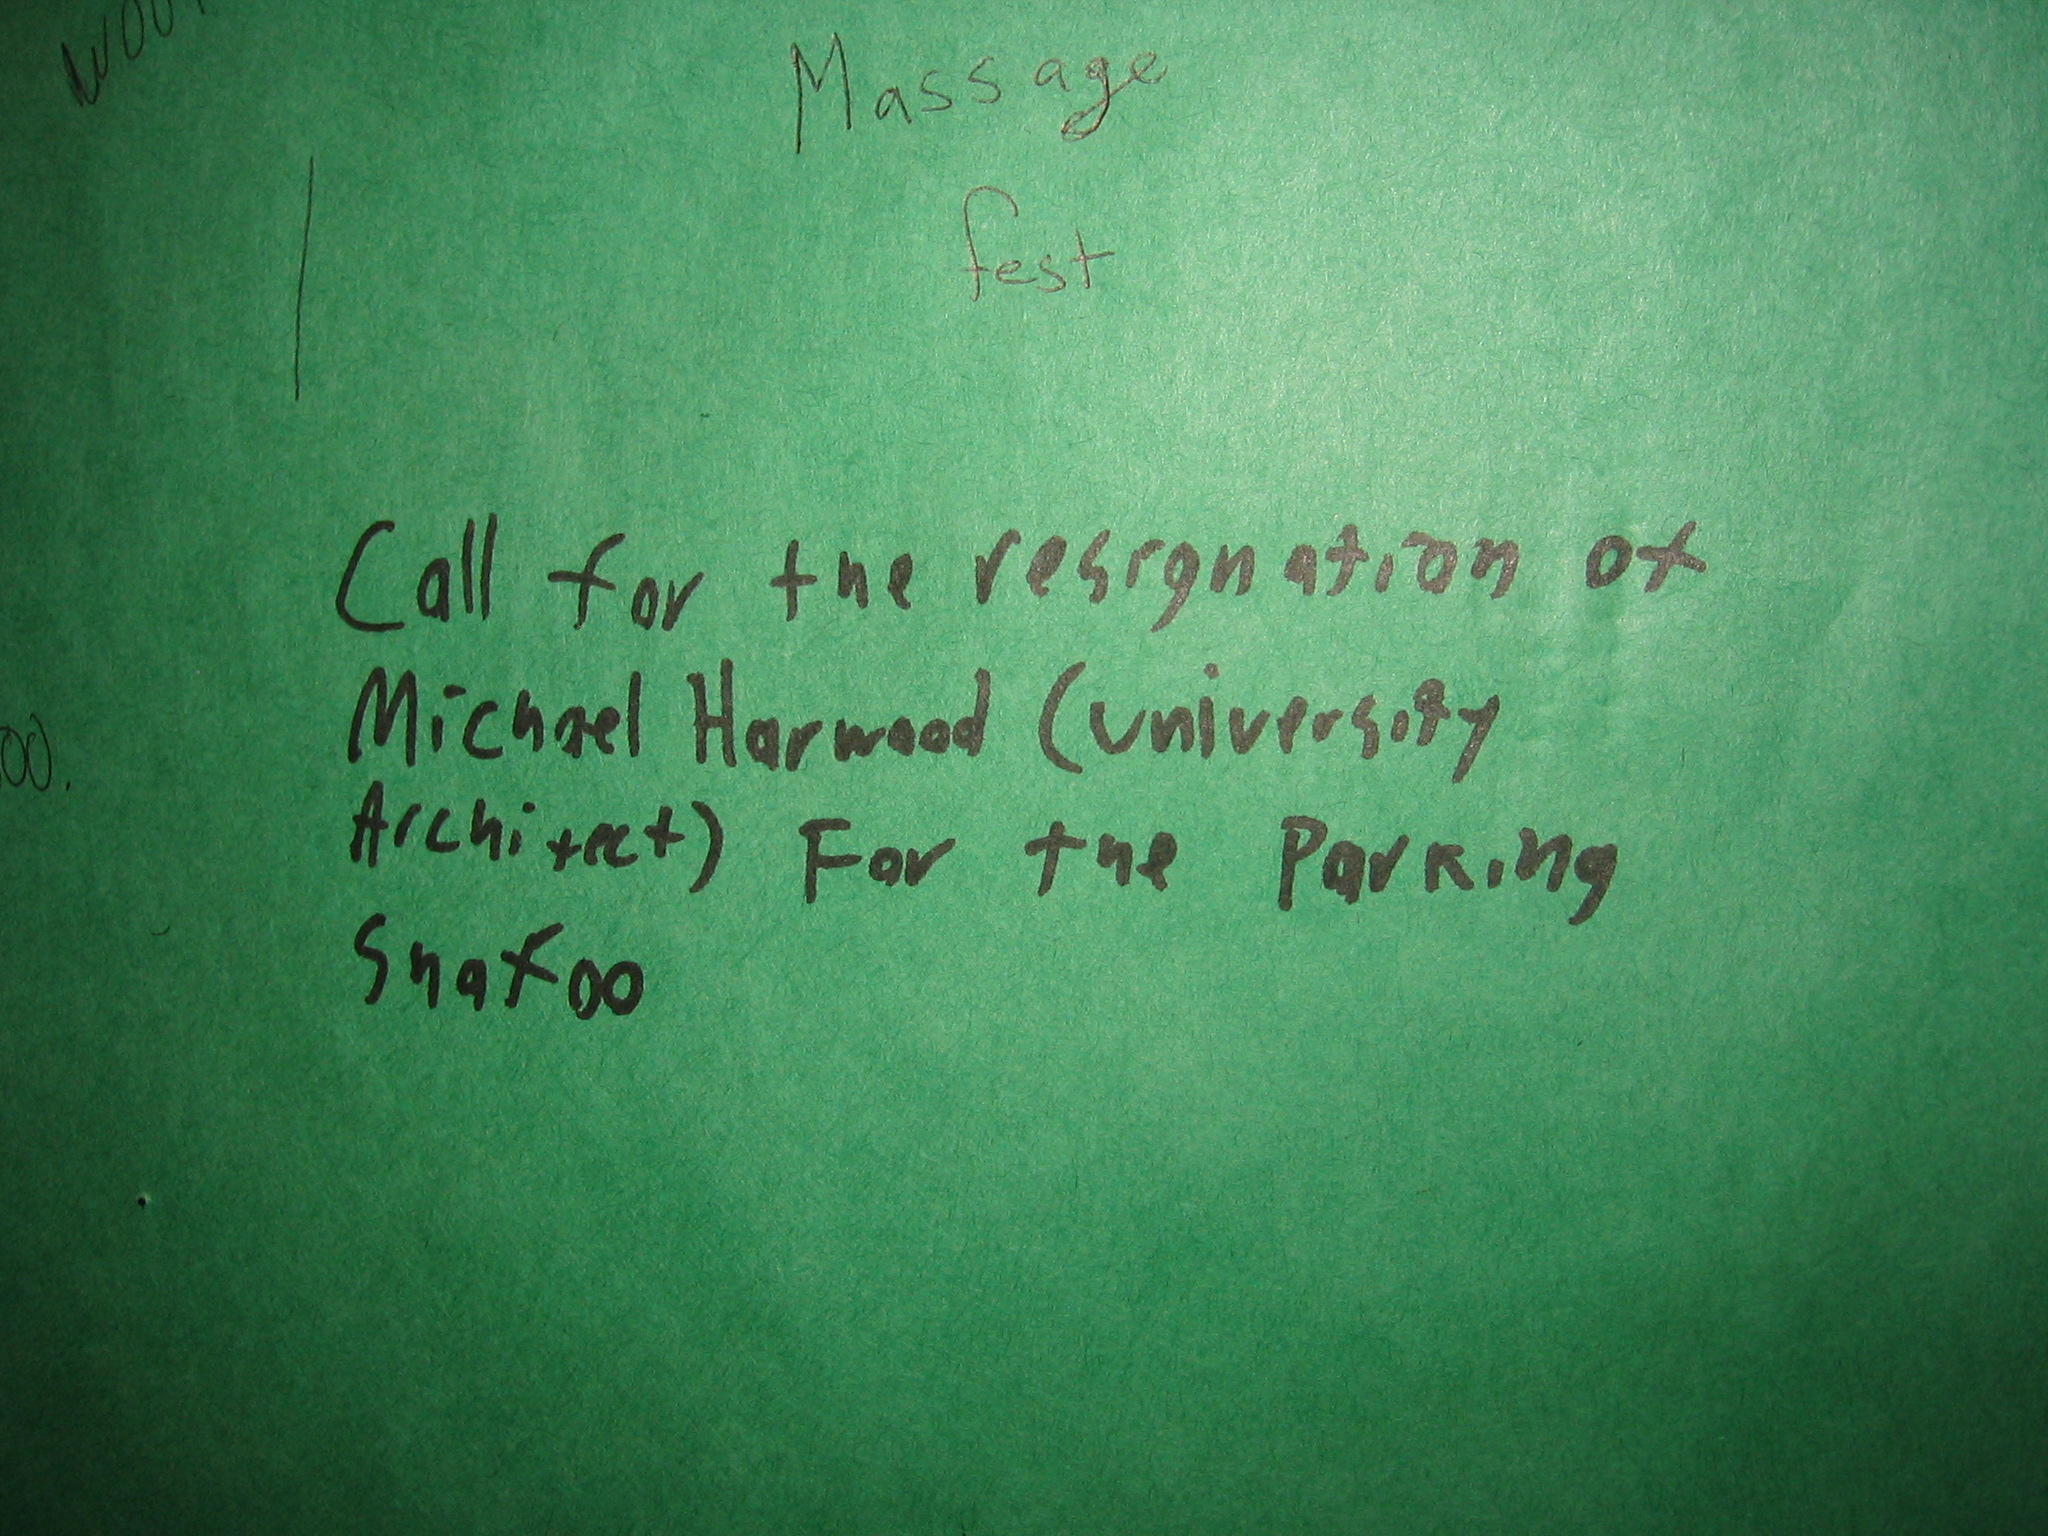 Massage
fest
Call for the resignation of
Michael Harwood (University
Architect) For the Parking
Snafoo